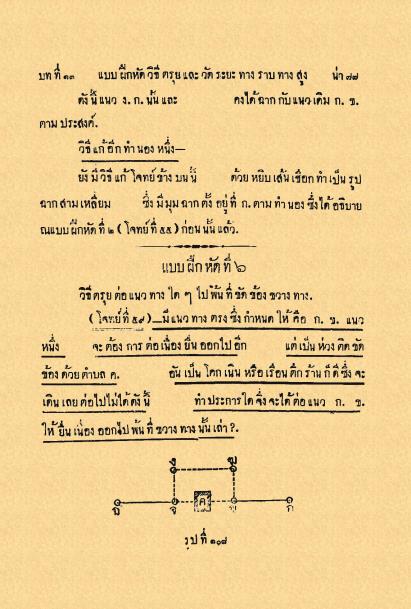 บทที่ ๑๓ แบบ ฝึกหัด วิธี ตรุย และ วัด ระยะ ทาง ราบ ทาง สูง น่า ๗๗
ดัง นี้ แนว ง. ก. นั้น และ คงได้ ฉาก กับ แนว เดิม ก. ข.
ตาม ประสงค์.
วิธี แก้ อีก ทำ นอง หนึ่ง—
ยัง มี วิธี แก้ โจทย์ ข้าง บน นี้ ด้วย หยิบ เส้น เชือก ทำ เป็น รูป
ฉาก สาม เหลี่ยม ซึ่ง มี มุม ฉาก ตั้ง อยู่ ที่ ก. ตาม ทำ นอง ซึ่ง ได้ อธิบาย
ณแบบ ฝึกหัด ที่ ๒ ( โจทย์ ที่ ๕๕ ) ก่อน นั้น แล้ว.
แบบ ฝึก หัด ที่ ๖
วิธี ตรุย ต่อ แนว ทาง ใด ๆ ไป พ้น ที่ ขัด ข้อง ขวาง ทาง.
( โจทย์ ที่ ๕๙ ) มี แนว ทาง ตรง ซึ่ง กำหนด ให้ คือ ก. ข. แนว
หนึ่ง จะ ต้อง การ ต่อ เนื่อง ยื่น ออก ไป อีก แต่ เป็น ห่วง ติด ขัด
ข้อง ด้วย ตำบล ค. อัน เป็น โคก เนิน หรือ เรือน ตึก ร้าน ก็ ดี ซึ่ง จะ
เดิน เลย ต่อ ไป ไม่ ได้ ดัง นี้ ทำ ประการ ใด จึ่ง จะ ได้ ต่อ แนว ก. ข.
ให้ ยื่น เนื่อง ออก ไป พ้น ที่ ขวาง ทาง นั้น เล่า ?.
ง ป
ฉ จ ค ข ก
รูป ที่ ๑๐๘